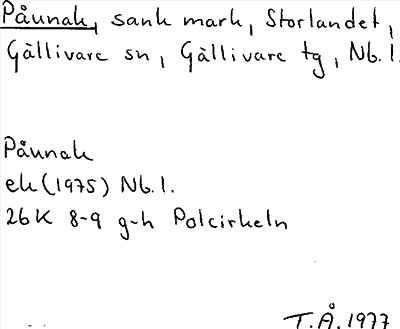 Påunak, sank mark, Storlandet,
Gällivare sn, Gällivare tg, Nb. l.
Påunak
ek (1975) Nb. l.
26K 8-9 g-h Polcirkeln
T.Å. 1977